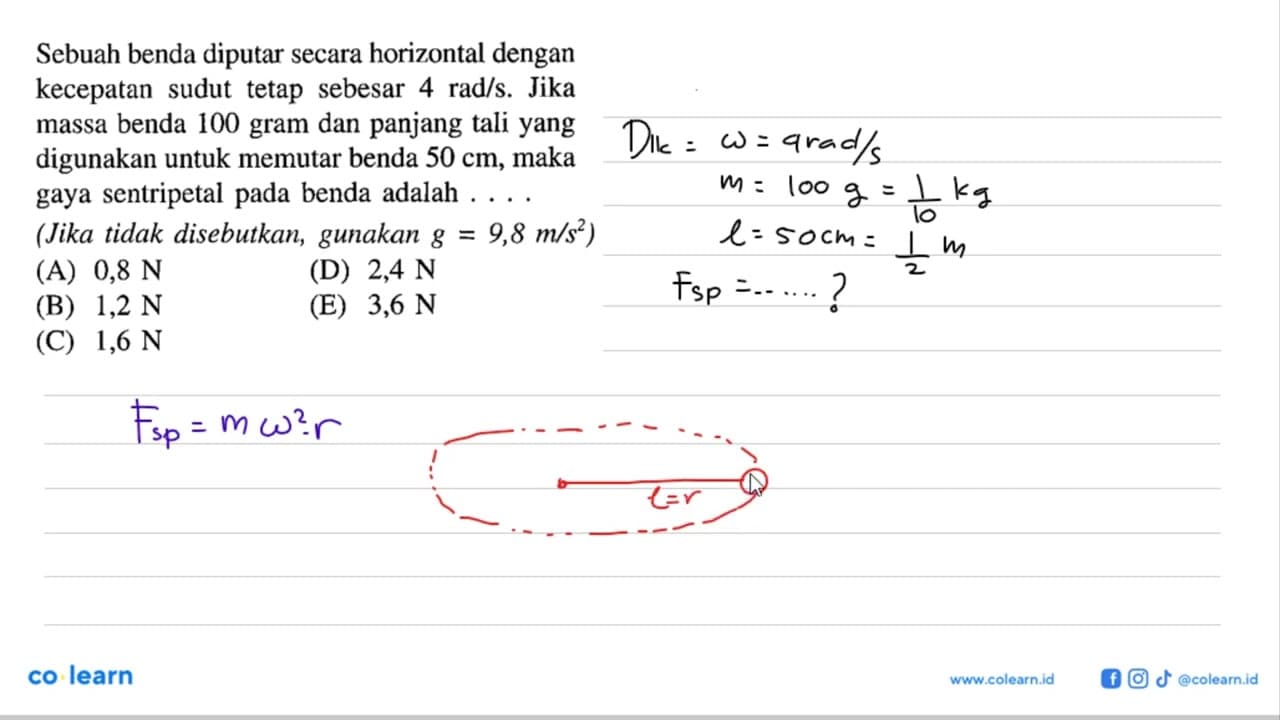 Sebuah benda diputar secara horizontal dengan
kecepatan sudut tetap sebesar 4 rad/s. Jika
massa benda 100 gram dan panjang tali yang
digunakan untuk memutar benda 50 cm, maka
gaya sentripetal pada benda adalah . . . .
(Jika tidak disebutkan, gunakan g = 9,8 m/s²)
(A) 0,8 N (D) 2,4 N
(B) 1,2 N (E) 3,6 N
(C) 1,6 N
Dik = ω = 4 rad/s
m = 100 g = 1/10 kg
l = 50 cm = 1/2 m
Fsp = ........ ?
Fsp = m ω². r
l = r
co learn
www.colearn.id
@colearn.id